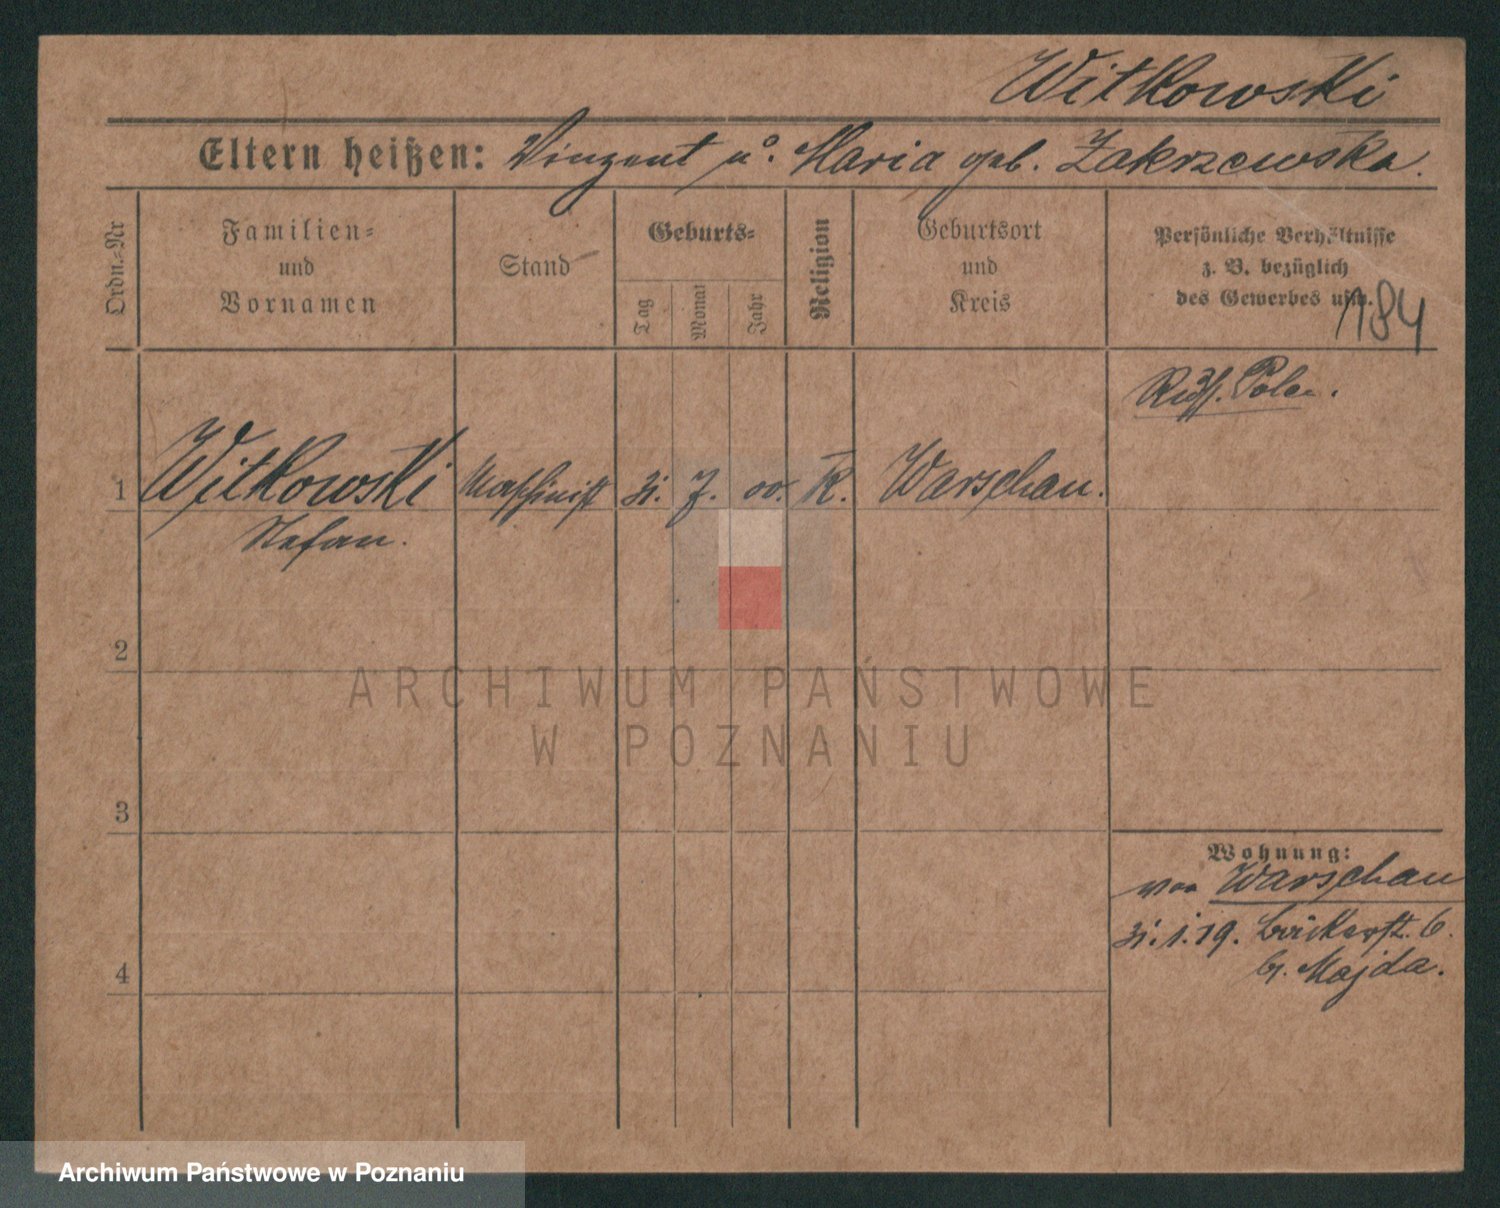 Witkowski
Eltern heißen: Vinzent u. Maria geb. Zakrzewska.
Ordn.-Nr
Familien-
und
Vornamen
Stand
Geburts-
Tag
Monat
Jahr
Religion
Geburtsort
und
Kreis
Persönliche Verhältnisse
z. B. bezüglich
des Gewerbes usw.
184
Russ. Polen.
1 Witkowski Maschinist 31. 7. 00. K. Warschau.
Stefan.
2
ARCHIWUM PAŃSTWOWE
W POZNANIU
3
Wohnung:
von Warschau
31.1.19. Bäckerstr. 6.
b. Majda.
4
Archiwum Państwowe w Poznaniu